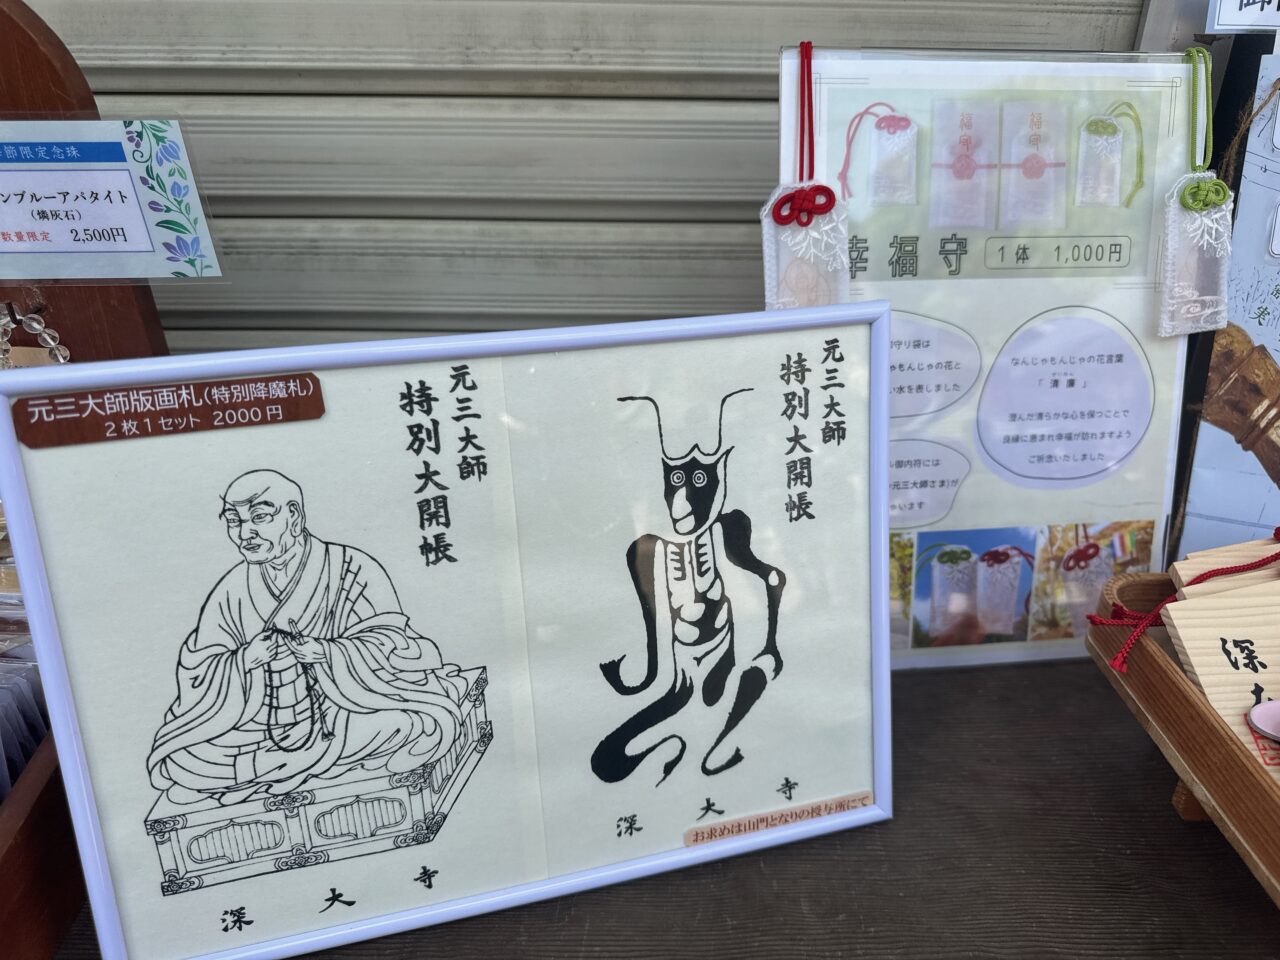 節限定念珠
ンブルーアパタイト
(燐灰石)
数量限定 2,500円
元三大師版画札(特別降魔札)
2枚1セット 2000円
元三大師
特別大開帳
深大寺
元三大師
特別大開帳
深大寺
お求めは山門となりの授与所にて
福守
福守
幸福守
1体 1,000円
守り袋は
ゃもんじゃの花と
い水を表しました
なんじゃもんじゃの花言葉
「清廉」
澄んだ清らかな心を保つことで
良縁に恵まれ幸福が訪れますよう
ご祈念いたしました
御内符には
元三大師さま)が
います
深